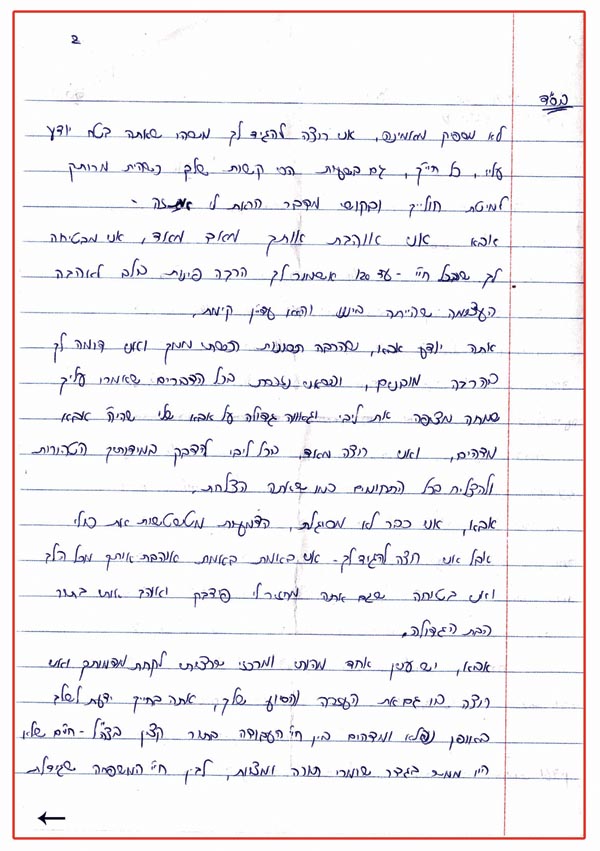 2
בס"ד
לא מספיק מאמינה, אני רוצה להגיד לך משהו שאתה בטח יודע
עליי, כל חייך, גם בשעות הכי קשות שלך כשהיית מרותק
למיטת חולייך ובקושי מדבר הראת לי את זה -
אבא אני אוהבת אותך מאוד מאוד, אני מבטיחה
לך שבכל חיי - עד 120 אשמור לך הרבה פינות בלב לאהבה
העצומה שהייתה ביננו והיא עדיין קיימת.
אתה יודע אבא, שהרבה תכונות הכסתי ממך ואני דומה לך
בהרבה מובנים, וכשאני נזכרת בכל הדברים שאמרו עליך
שמחה מציפה את ליבי וגאווה גדולה על אבא שלי שהיה אבא
מדהים, ואני רוצה מאוד בכל ליבי להדבק במידותיך הטהורות
ולהצליח בכל התחומים כמו שאתה הצלחת.
אבא, אני כבר לא מסוגלת, הדמעות מטשטשות את כולי
אבל אני רוצה להגיד לך - אני באמת באמת אוהבת אותך מכל הלב
ואני בטוחה שגם אתה מחזיר לי בדבק ואוהב אותי בתור
הבת הגדולה.
אבא, יש עניין אחד מהותי ומרכזי שרציתי לקחת מדמותך ואני
רוצה בו גם את העזרה והסיוע שלך, אתה בחייך ידעת לשלב
באופן נפלא ומדהים בין חיי העבודה בתור קצין בצה"ל - חיים שלא
היו ממש בגדר שומרי תורה ומצוות, לבין חיי המשפחה שגידלת
←